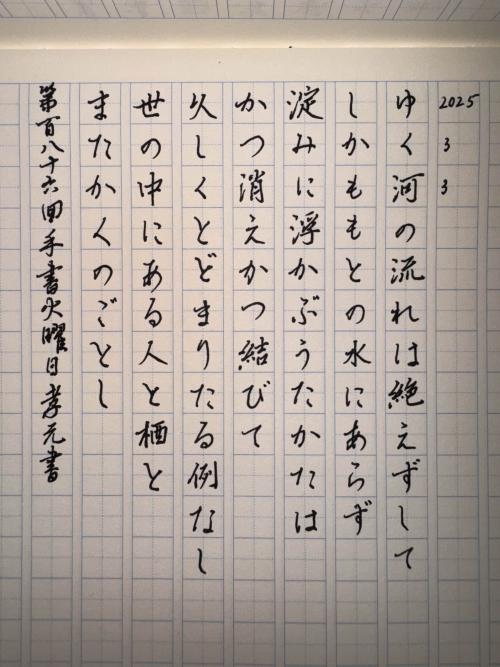 2025 3 3
ゆく河の流れは絶えずして
しかももとの水にあらず
淀みに浮かぶうたかたは
かつ消えかつ結びて
久しくとどまりたる例なし
世の中にある人と栖と
またかくのごとし
第百八十六回手書火曜日孝元書